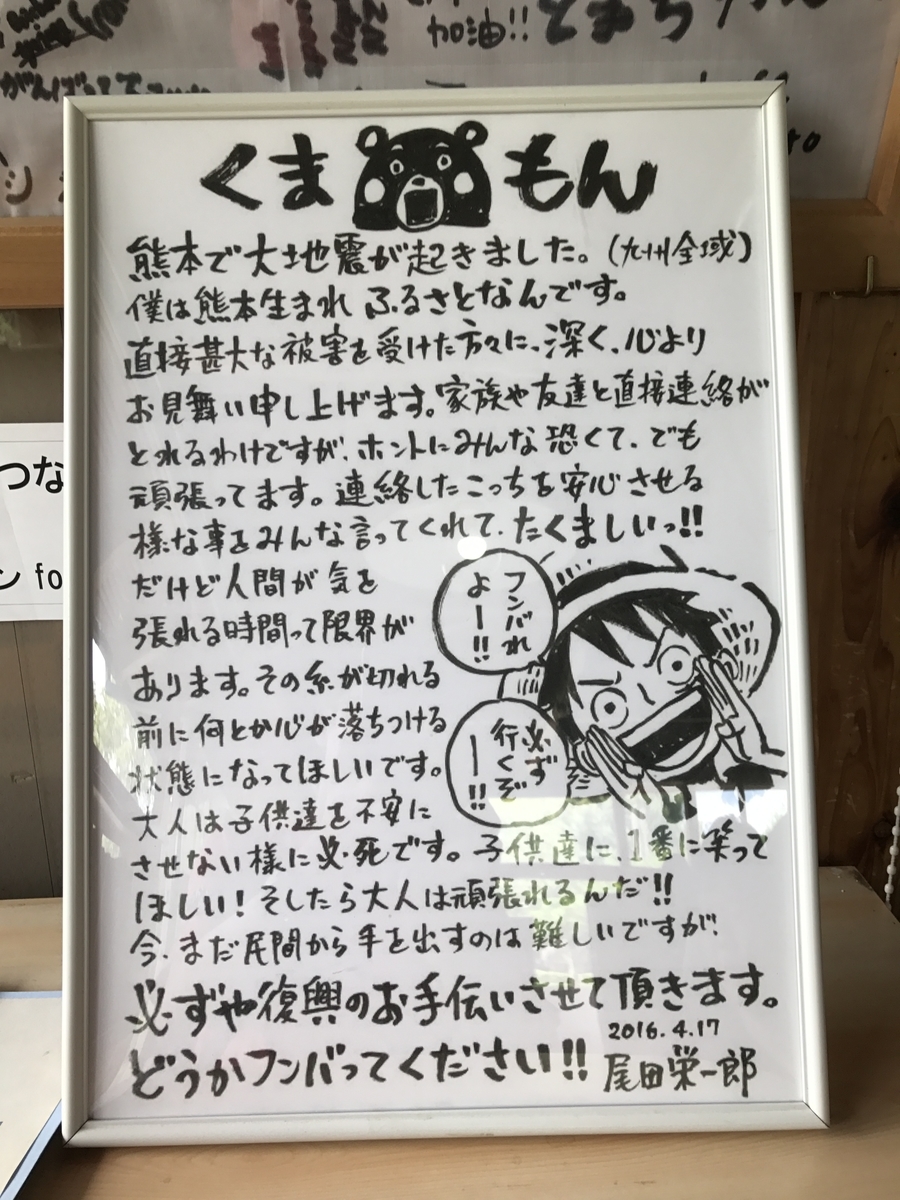 加油!!
がんばって
くまもん
熊本で大地震が起きました。(九州全域)
僕は熊本生まれ ふるさとなんです。
直接甚大な被害を受けた方々に、深く、心より
お見舞い申し上げます。家族や友達と直接連絡が
とれるわけですが、ホントにみんな恐くて、でも
頑張ってます。連絡したこっちを安心させる
様な事をみんな言ってくれて、たくましいっ!!
だけど人間が気を
張れる時間って限界が
あります。その糸が切れる
前に何とか心が落ちつける
状態になってほしいです。
大人は子供達を不安に
させない様に必死です。子供達に、1番に笑って
ほしい!そしたら大人は頑張れるんだ!!
今、まだ民間から手を出すのは難しいですが、
必ずや復興のお手伝いさせて頂きます。
どうかフンバってください!!
2016.4.17
尾田栄一郎
フンバれ
よー!!
必ず
行くぞ
ー!!
つな
ン fo